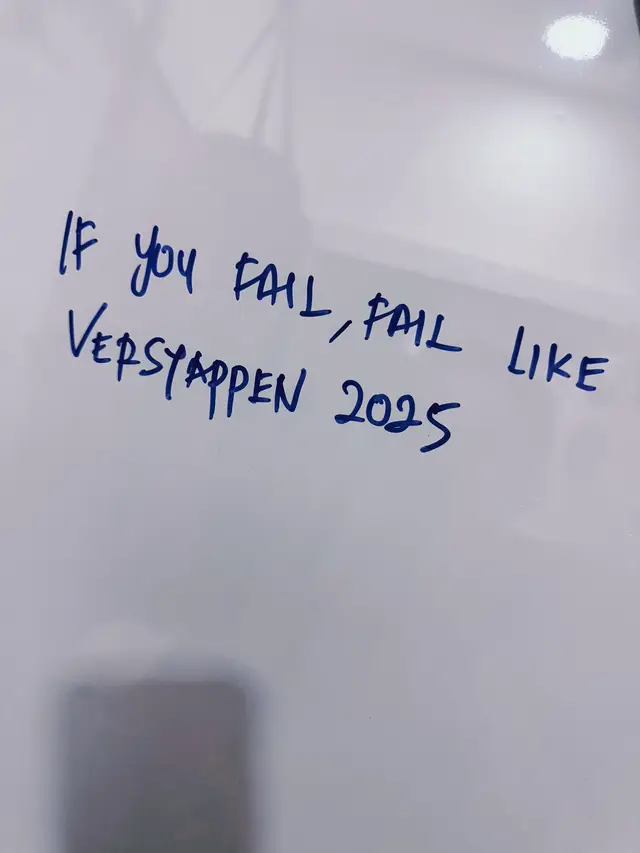 IF YOU FAIL, FAIL LIKE
VERSTAPPEN 2025